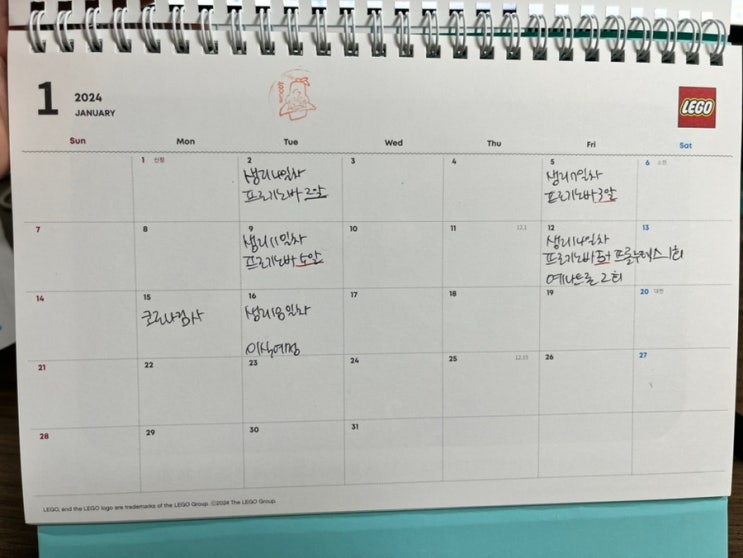 1 2024
JANUARY
LEGO
Sun Mon Tue Wed Thu Fri Sat
1 신정 2 3 4 5 6 소한
생리4일차 생리7일차
프로기노바 2알 프로기노바 3알
7 8 9 10 11 12.1 12 13
생리11일차 생리14일차
프로기노바 5알 프로기노바 5+ 프롤루텍스 1회
예나트론 2회
14 15 16 17 18 19 20 대한
코로나검사 생리18일차
이식예정
21 22 23 24 25 12.15 26 27
28 29 30 31
LEGO, and the LEGO logo are trademarks of the LEGO Group. ©2024 The LEGO Group.